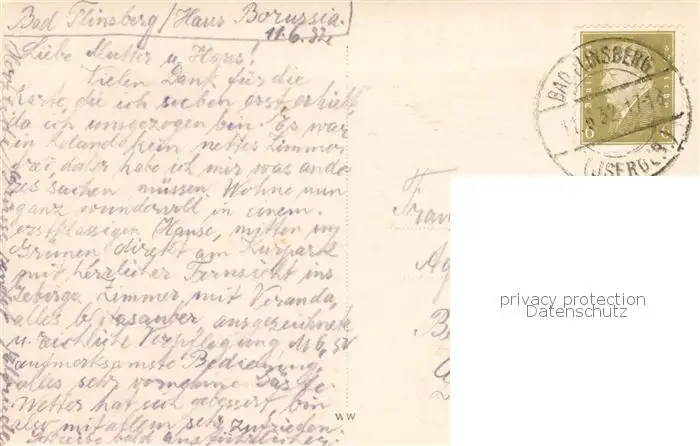 Bad Flinsberg / Haus Borussia.
11.6.32.
Liebe Mutter u. Hans!
Vielen Dank für die
Karte, die ich soeben erst erhielt,
da ich umgezogen bin. Es war
in Rolandsheim nettes Zimmer
frei, daher habe ich mir was ande
res suchen müssen. Wohne nun
ganz wundervoll in einem
erstklassigen Hause, mitten im
Grünen direkt am Kurpark
mit herrlicher Fernsicht ins
Gebirge. Zimmer mit Veranda,
alles blitzsauber, ausgezeichnete
u. reichliche Verpflegung
aufmerksamste Bedienung
alles sehr vornehm. Das
Wetter hat sich gebessert, bin
also mit allem sehr zufrieden.
Schreibe bald ausführlicher
BAD FLINSBERG
11.6.32
(ISERGEB.)
6
Frau
WW
privacy protection
Datenschutz